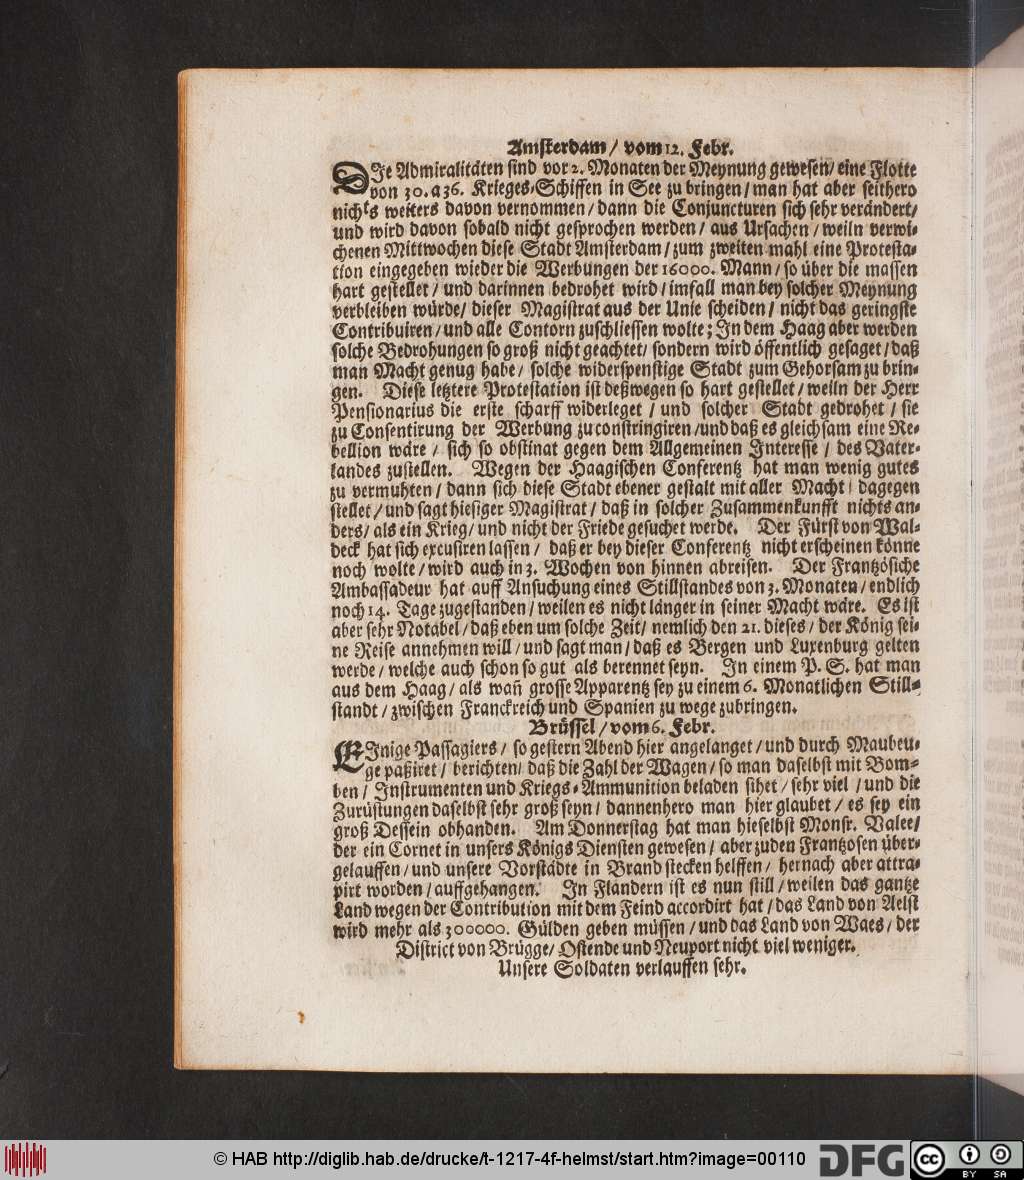 Amsterdam / vom 12. Febr.
DJe Admiralitäten sind vor 2. Monaten der Meynung gewesen / eine Flotte
von 30. a 36. Krieges-Schiffen in See zu bringen / man hat aber seithero
nichts weiters davon vernommen / dann die Conjuncturen sich sehr verändert /
und wird davon sobald nicht gesprochen werden / aus Ursachen / weiln verwi-
chenen Mittwochen diese Stadt Amsterdam / zum zweiten mahl eine Protesta-
tion eingegeben wieder die Werbungen der 16000. Mann / so über die massen
hart gestellet / und darinnen bedrohet wird / imfall man bey solcher Meynung
verbleiben würde / dieser Magistrat aus der Unie scheiden / nicht das geringste
Contribuiren / und alle Contorn zuschliessen wolte; Jn dem Haag aber werden
solche Bedrohungen so groß nicht geachtet / sondern wird öffentlich gesaget / daß
man Macht genug habe / solche widerspenstige Stadt zum Gehorsam zu brin-
gen. Diese letztere Protestation ist deßwegen so hart gestellet / weiln der Herr
Pensionarius die erste scharff widerleget / und solcher Stadt gedrohet / sie
zu Consentirung der Werbung zu constringiren / und daß es gleichsam eine Re-
bellion wäre / sich so obstinat gegen dem Allgemeinen Jnteresse / des Vater-
landes zustellen. Wegen der Haagischen Conferentz hat man wenig gutes
zu vermuhten / dann sich diese Stadt ebener gestalt mit aller Macht / dagegen
stellet / und sagt hiesiger Magistrat / daß in solcher Zusammenkunfft nichts an-
ders / als ein Krieg / und nicht der Friede gesuchet werde. Der Fürst von Wal-
deck hat sich excusiren lassen / daß er bey dieser Conferentz nicht erscheinen könne
noch wolte / wird auch in 3. Wochen von hinnen abreisen. Der Frantzösiche
Ambassadeur hat auff Ansuchung eines Stillstandes von 3. Monaten / endlich
noch 14. Tage zugestanden / weilen es nicht länger in seiner Macht wäre. Es ist
aber sehr Notabel / daß eben um solche Zeit / nemlich den 21. dieses / der König sei-
ne Reise annehmen will / und sagt man / daß es Bergen und Luxenburg gelten
werde / welche auch schon so gut als berennet seyn. Jn einem P. S. hat man
aus dem Haag / als wañ grosse Apparentz sey zu einem 6. Monatlichen Still-
standt / zwischen Franckreich und Spanien zu wege zubringen.
Brüssel / vom 6. Febr.
EJnige Passagiers / so gestern Abend hier angelanget / und durch Maubeu-
ge paßiret / berichten / daß die Zahl der Wagen / so man daselbst mit Bom-
ben / Jnstrumenten und Kriegs-Ammunition beladen sihet / sehr viel / und die
Zurüstungen daselbst sehr groß seyn / dannenhero man hier glaubet / es sey ein
groß Dessein obhanden. Am Donnerstag hat man hieselbst Monsr. Valee /
der ein Cornet in unsers Königs Diensten gewesen / aber zuden Frantzosen über-
gelauffen / und unsere Vorstädte in Brand stecken helffen / hernach aber attra-
pirt worden / auffgehangen. Jn Flandern ist es nun still / weilen das gantze
Land wegen der Contribution mit dem Feind accordirt hat / das Land von Aelst
wird mehr als 300000. Gülden geben müssen / und das Land von Waes / der
District von Brügge / Ostende und Neuport nicht viel weniger.
Unsere Soldaten verlauffen sehr.
© HAB http://diglib.hab.de/drucke/t-1217-4f-helmst/start.htm?image=00110
DFG
cc BY SA